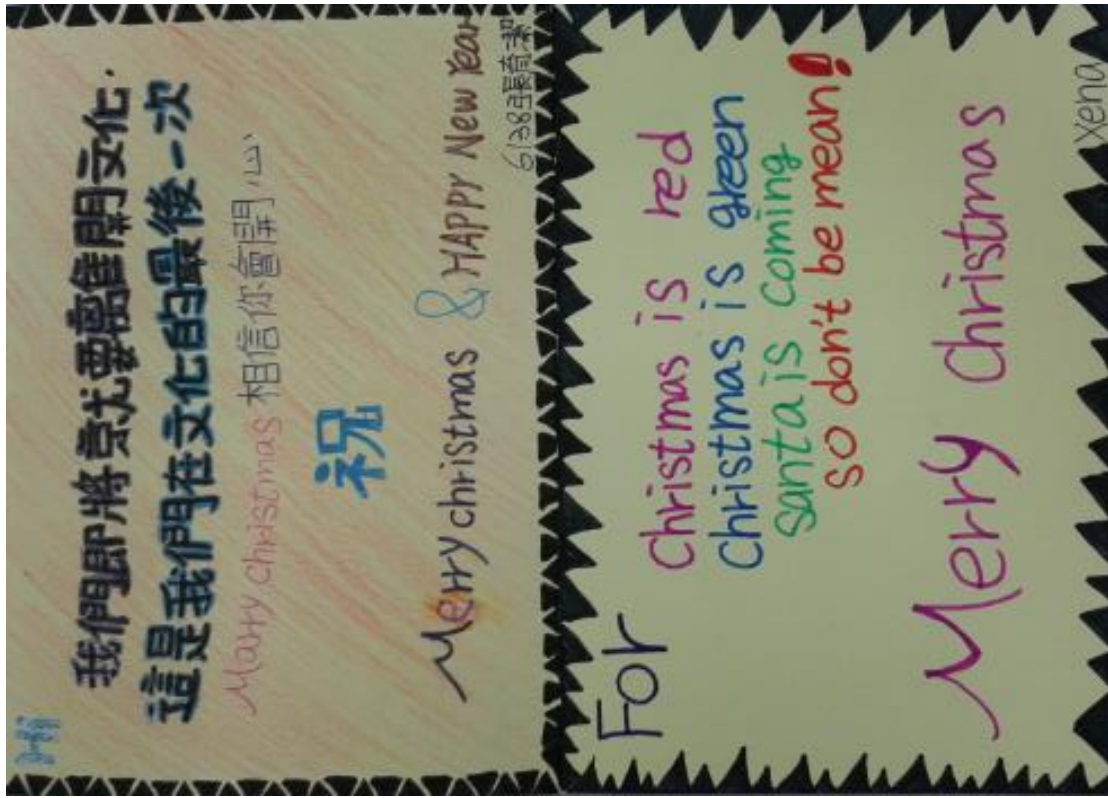 我們即將就要離開文化.
這是我們在文化的最後一次
Marry christmas 相信你會開心
祝
Merry christmas & HAPPY New Year
For
Christmas is red
Christmas is green
Santa is coming
so don't be mean!
Merry Christmas
xena